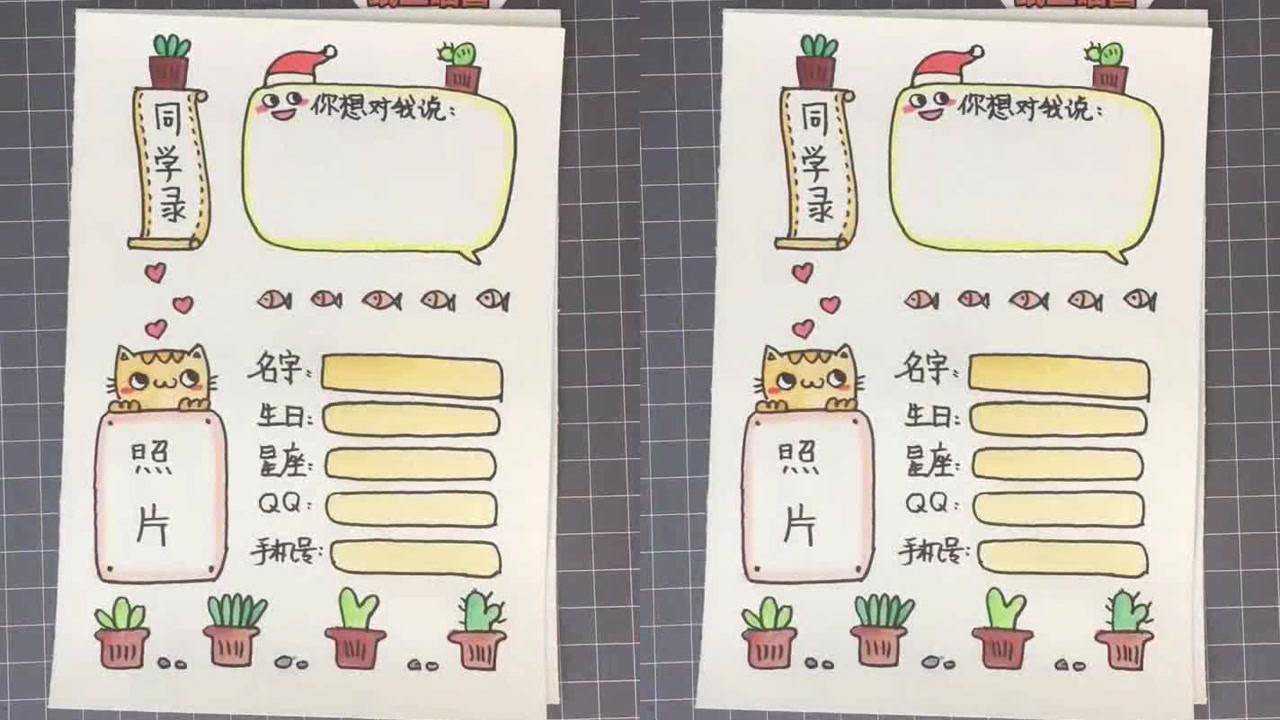 同学录
你想对我说:
名字:
生日:
星座:
QQ:
手机号:
照片
同学录
你想对我说:
名字:
生日:
星座:
QQ:
手机号:
照片